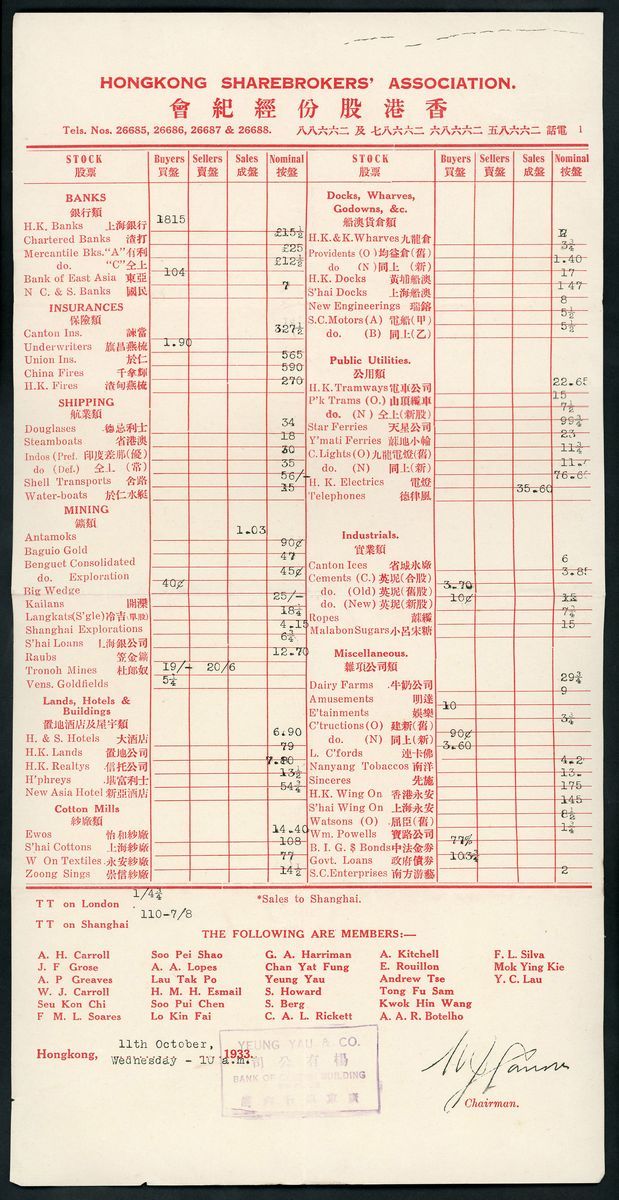 HONGKONG SHAREBROKERS' ASSOCIATION.
會紀經份股港香
Tels. Nos. 26685, 26686, 26687 & 26688. 八八六六二 及 七八六六二 六八六六二 五八六六二 話電 1
STOCK Buyers Sellers Sales Nominal
股票 買盤 賣盤 成盤 按盤
BANKS
銀行類
H.K. Banks 上海銀行 1815
Chartered Banks 渣打 £15½
Mercantile Bks."A"有利 £25
do. "C"仝上 £12½
Bank of East Asia 東亞 104
N C. & S. Banks 國民 7
INSURANCES
保險類
Canton Ins. 諫當 327½
Underwriters 旗昌燕梳 1.90
Union Ins. 於仁 565
China Fires 千拿輝 590
H.K. Fires 渣甸燕梳 270
SHIPPING
航業類
Douglases 德忌利士 34
Steamboats 省港澳 18
Indos (Pref. 印度差那(優) 30
do (Def.) 仝上 (常) 35
Shell Transports 舍路 56/-
Water-boats 於仁水艇 15
MINING
鑛類
Antamoks 1.03
Baguio Gold 90¢
Benguet Consolidated 47
do. Exploration 45¢
Big Wedge 40¢
Kailans 開灤 25/-
Langkats(S'gle)冷吉(單股) 18¼
Shanghai Explorations 4.15
S'hai Loans 上海銀公司 6¾
Raubs 笠金鑛 12.70
Tronoh Mines 杜郎奴 19/- 20/6
Vens. Goldfields 5¼
Lands, Hotels &
Buildings
置地酒店及屋宇類
H. & S. Hotels 大酒店 6.90
H.K. Lands 置地公司 79
H.K. Realtys 信托公司
H'phreys 堪富利士 13½
New Asia Hotel 新亞酒店 54¾
Cotton Mills
紗廠類
Ewos 怡和紗廠 14.40
S'hai Cottons 上海紗廠 108
W On Textiles 永安紗廠 77
Zoong Sings 崇信紗廠 14½
STOCK Buyers Sellers Sales Nominal
股票 買盤 賣盤 成盤 按盤
Docks, Wharves,
Godowns, &c.
船澳貨倉類
H.K.&K.Wharves九龍倉
Providents (O)均益倉(舊) 3¾
do (N)同上 (新) 1.40
H.K. Docks 黃埔船澳 17
S'hai Docks 上海船澳 147
New Engineerings 瑞鎔 8
S.C.Motors(A) 電船(甲) 5½
do. (B) 同上(乙) 5½
Public Utilities.
公用類
H.K.Tramways電車公司 22.65
P'k Trams (O.)山頂纜車 15
do. (N) 仝上(新股) 7½
Star Ferries 天星公司 99¾
Y'mati Ferries 蔴地小輪 23
C.Lights(O)九龍電燈(舊) 11¾
do. (N) 同上(新)
H. K. Electrics 電燈
Telephones 德律風 35.60
Industrials.
實業類
Canton Ices 省城氷廠 6
Cements (C.) 英坭(合股) 3.70
do. (Old)英坭(舊股) 10¢
do. (New)英坭(新股)
Ropes 蔴纜 7¾
MalabonSugars小呂宋糖 15
Miscellaneous.
雜項公司類
Dairy Farms 牛奶公司 29¾
Amusements 明達 9
E'tainments 娛樂 10
C'tructions(O) 建新(舊) 3¼
do. (N) 同上(新) 90¢
L. C'fords 連卡佛 3.60
Nanyang Tobaccos 南洋
Sinceres 先施
H.K. Wing On 香港永安 175
S'hai Wing On 上海永安 145
Watsons (O) 屈臣(舊) 8½
Wm. Powells 寶路公司 1¾
B. I. G. $ Bonds中法金券 77%
Govt. Loans 政府債券
S.C.Enterprises 南方游藝 2
TT on London 1/4¾
*Sales to Shanghai.
TT on Shanghai 110-7/8
THE FOLLOWING ARE MEMBERS:—
A. H. Carroll Soo Pei Shao G. A. Harriman A. Kitchell F. L. Silva
J. F Grose A. A. Lopes Chan Yat Fung E. Rouillon Mok Ying Kie
A. P Greaves Lau Tak Po Yeung Yau Andrew Tse Y. C. Lau
W. J. Carroll H. M. H. Esmail S. Howard Tong Fu Sam
Seu Kon Chi Soo Pui Chen S. Berg Kwok Hin Wang
F M. L. Soares Lo Kin Fai C. A. L. Rickett A. A. R. Botelho
Hongkong, 11th October,
Wednesday - 10 a.m. 1933.
YEUNG YAU & CO.
司公有楊
BANK OF CANTON BUILDING
Chairman.